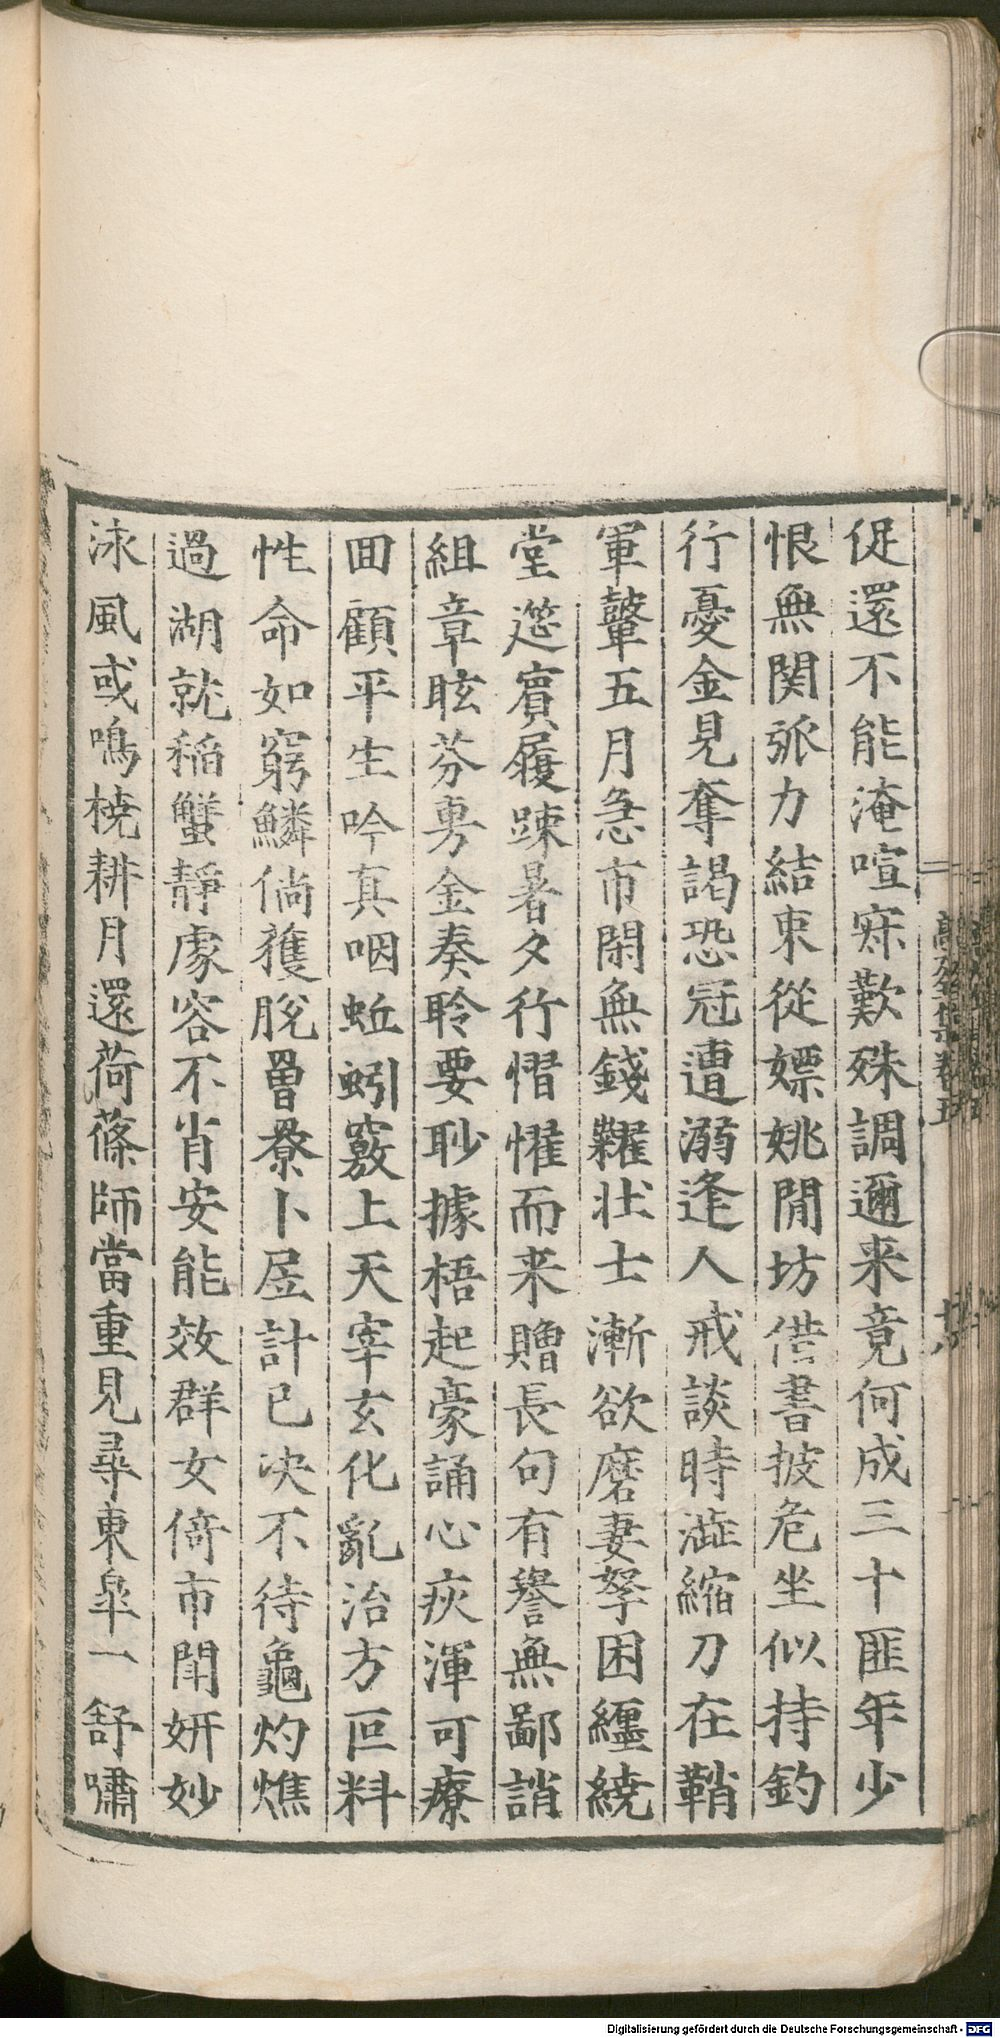 促還不能淹喧寐歎殊調邇来竟何成三十匪年少
恨無関弧力結束從嫖姚閒坊借書披危坐似持釣
行憂金見奪謁恐冠遭溺逢人戒談時澁縮刀在鞘
軍鼙五月急市閑無錢糶壮士漸欲磨妻孥困纒繞
堂筵賓履踈暑夕行慴懼而来贈長句有譽無鄙誚
組章眩芬勇金奏聆要眇據梧起豪誦心疢渾可療
囬顧平生吟真咽蚯蚓竅上天宰玄化亂治方叵料
性命如窮鱗倘獲脫罾罺卜居計已决不待龜灼燋
過湖就稲蟹靜處容不肖安能效群女倚市閗妍妙
泳風或鳴橈耕月還荷蓧師當重見尋東皐一舒嘯
卷五
十八
Digitalisierung gefördert durch die Deutsche Forschungsgemeinschaft - DFG